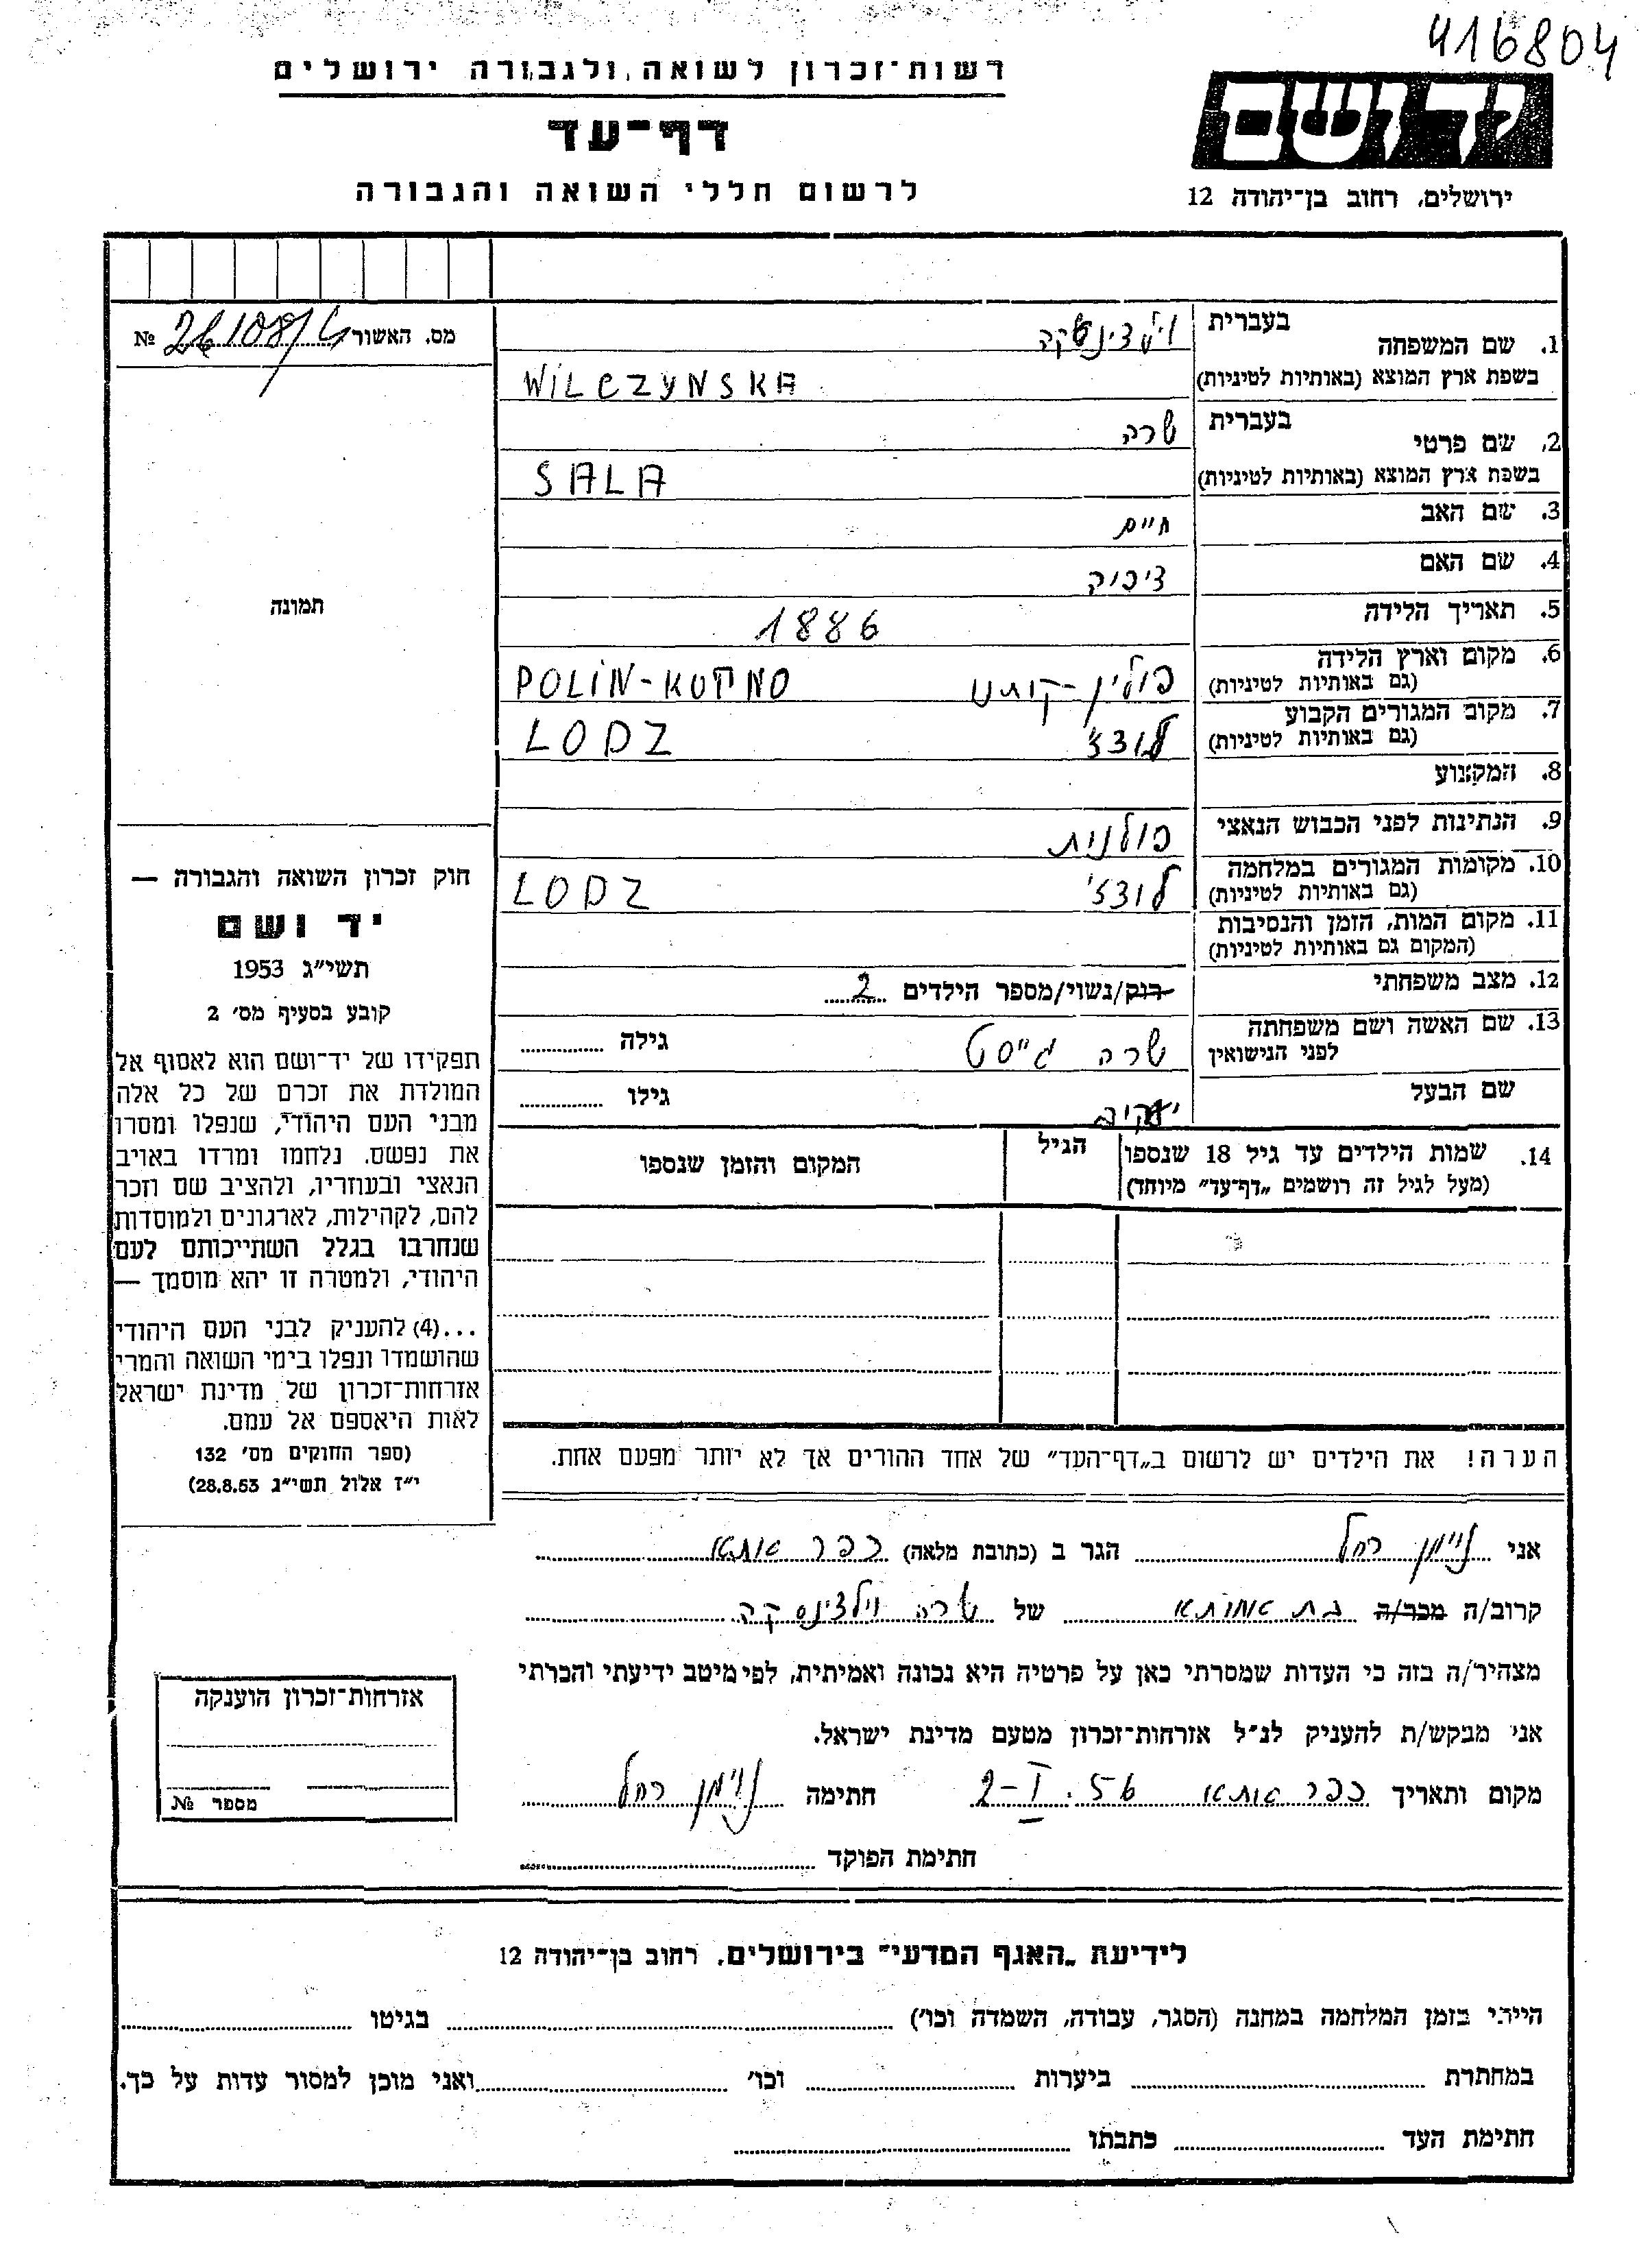 416804
רשות־זכרון לשואה ולגבורה ירושלים
דף־עד
לרשום חללי השואה והגבורה
יד ושם
ירושלים, רחוב בן־יהודה 12
מס. האשור №
1. שם המשפחה בעברית וילצינסקה
בשפת ארץ המוצא (באותיות לטיניות) WILCZYNSKA
2. שם פרטי בעברית שרה
בשפת ארץ המוצא (באותיות לטיניות) SALA
3. שם האב חיים
4. שם האם ציפויה
5. תאריך הלידה 1886
6. מקום וארץ הלידה
(גם באותיות לטיניות) פולין - קוטנו POLIN-KUTNO
7. מקום המגורים הקבוע
(גם באותיות לטיניות) לודז' LODZ
8. המקצוע
9. הנתינות לפני הכבוש הנאצי פולנית
10. מקומות המגורים במלחמה
(גם באותיות לטיניות) לודז' LODZ
11. מקום המות, הזמן והנסיבות
(המקום גם באותיות לטיניות)
12. מצב משפחתי רוק/נשוי/מספר הילדים 2
13. שם האשה ושם משפחתה
לפני הנישואין שרה גייסט גילה
שם הבעל יעקוב גילו
14. שמות הילדים עד גיל 18 שנספו
(מעל לגיל זה רושמים „דף־עד" מיוחד)
הגיל
המקום והזמן שנספו
תמונה
חוק זכרון השואה והגבורה —
יד ושם
תשי״ג 1953
קובע בסעיף מס׳ 2
תפקידו של יד־ושם הוא לאסוף אל
המולדת את זכרם של כל אלה
מבני העם היהודי, שנפלו ומסרו
את נפשם, נלחמו ומרדו באויב
הנאצי ובעוזריו, ולהציב שם וזכר
להם, לקהילות, לארגונים ולמוסדות
שנחרבו בגלל השתייכותם לעם
היהודי, ולמטרה זו יהא מוסמך —
...(4) להעניק לבני העם היהודי
שהושמדו ונפלו בימי השואה והמרי
אזרחות־זכרון של מדינת ישראל
לאות היאספם אל עמם.
(ספר החוקים מס׳ 132
י״ז אלול תשי״ג 28.8.53)
הערה! את הילדים יש לרשום ב„דף־העד" של אחד ההורים אך לא יותר מפעם אחת.
אני ניימן רחל הגר ב (כתובת מלאה) כפר אתא
קרוב/ה מכר/ה בת אחותא של שרה וילצינסקה
מצהיר/ה בזה כי העדות שמסרתי כאן על פרטיה היא נכונה ואמיתית, לפי מיטב ידיעתי והכרתי
אני מבקש/ת להעניק לנ״ל אזרחות־זכרון מטעם מדינת ישראל.
מקום ותאריך כפר אתא 2-I.56 חתימה ניימן רחל
חתימת הפוקד
אזרחות־זכרון הוענקה
מספר №
לידיעת „האגף המדעי" בירושלים, רחוב בן־יהודה 12
הייתי בזמן המלחמה במחנה (הסגר, עבודה, השמדה וכו׳) בגיטו
במחתרת ביערות וכו׳ ואני מוכן למסור עדות על כך.
חתימת העד כתבתו